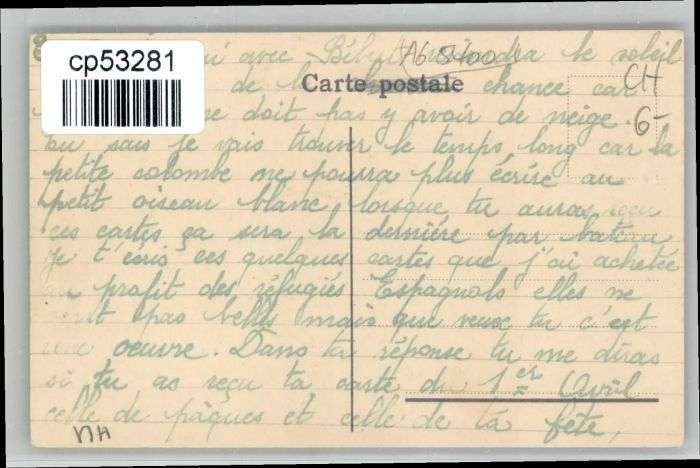 cp53281
A6 5400
CH
6-
Carte postale
avec Bébé viendra le soleil
de la chance car
ne doit pas y avoir de neige.
tu sais je vais trouver le temps long car la
petite colombe ne pourra plus écrire au
petit oiseau blanc, lorsque tu auras reçu
ces cartes ça sera la dernière par bateau
je t'écris ces quelques cartes que j'ai achetée
au profit des réfugiés Espagnols elles ne
sont pas belles mais que veux tu c'est
une oeuvre. Dans ta réponse tu me diras
si tu as reçu ta carte du 1er Avril
celle de pâques et celle de ta fête,
NH